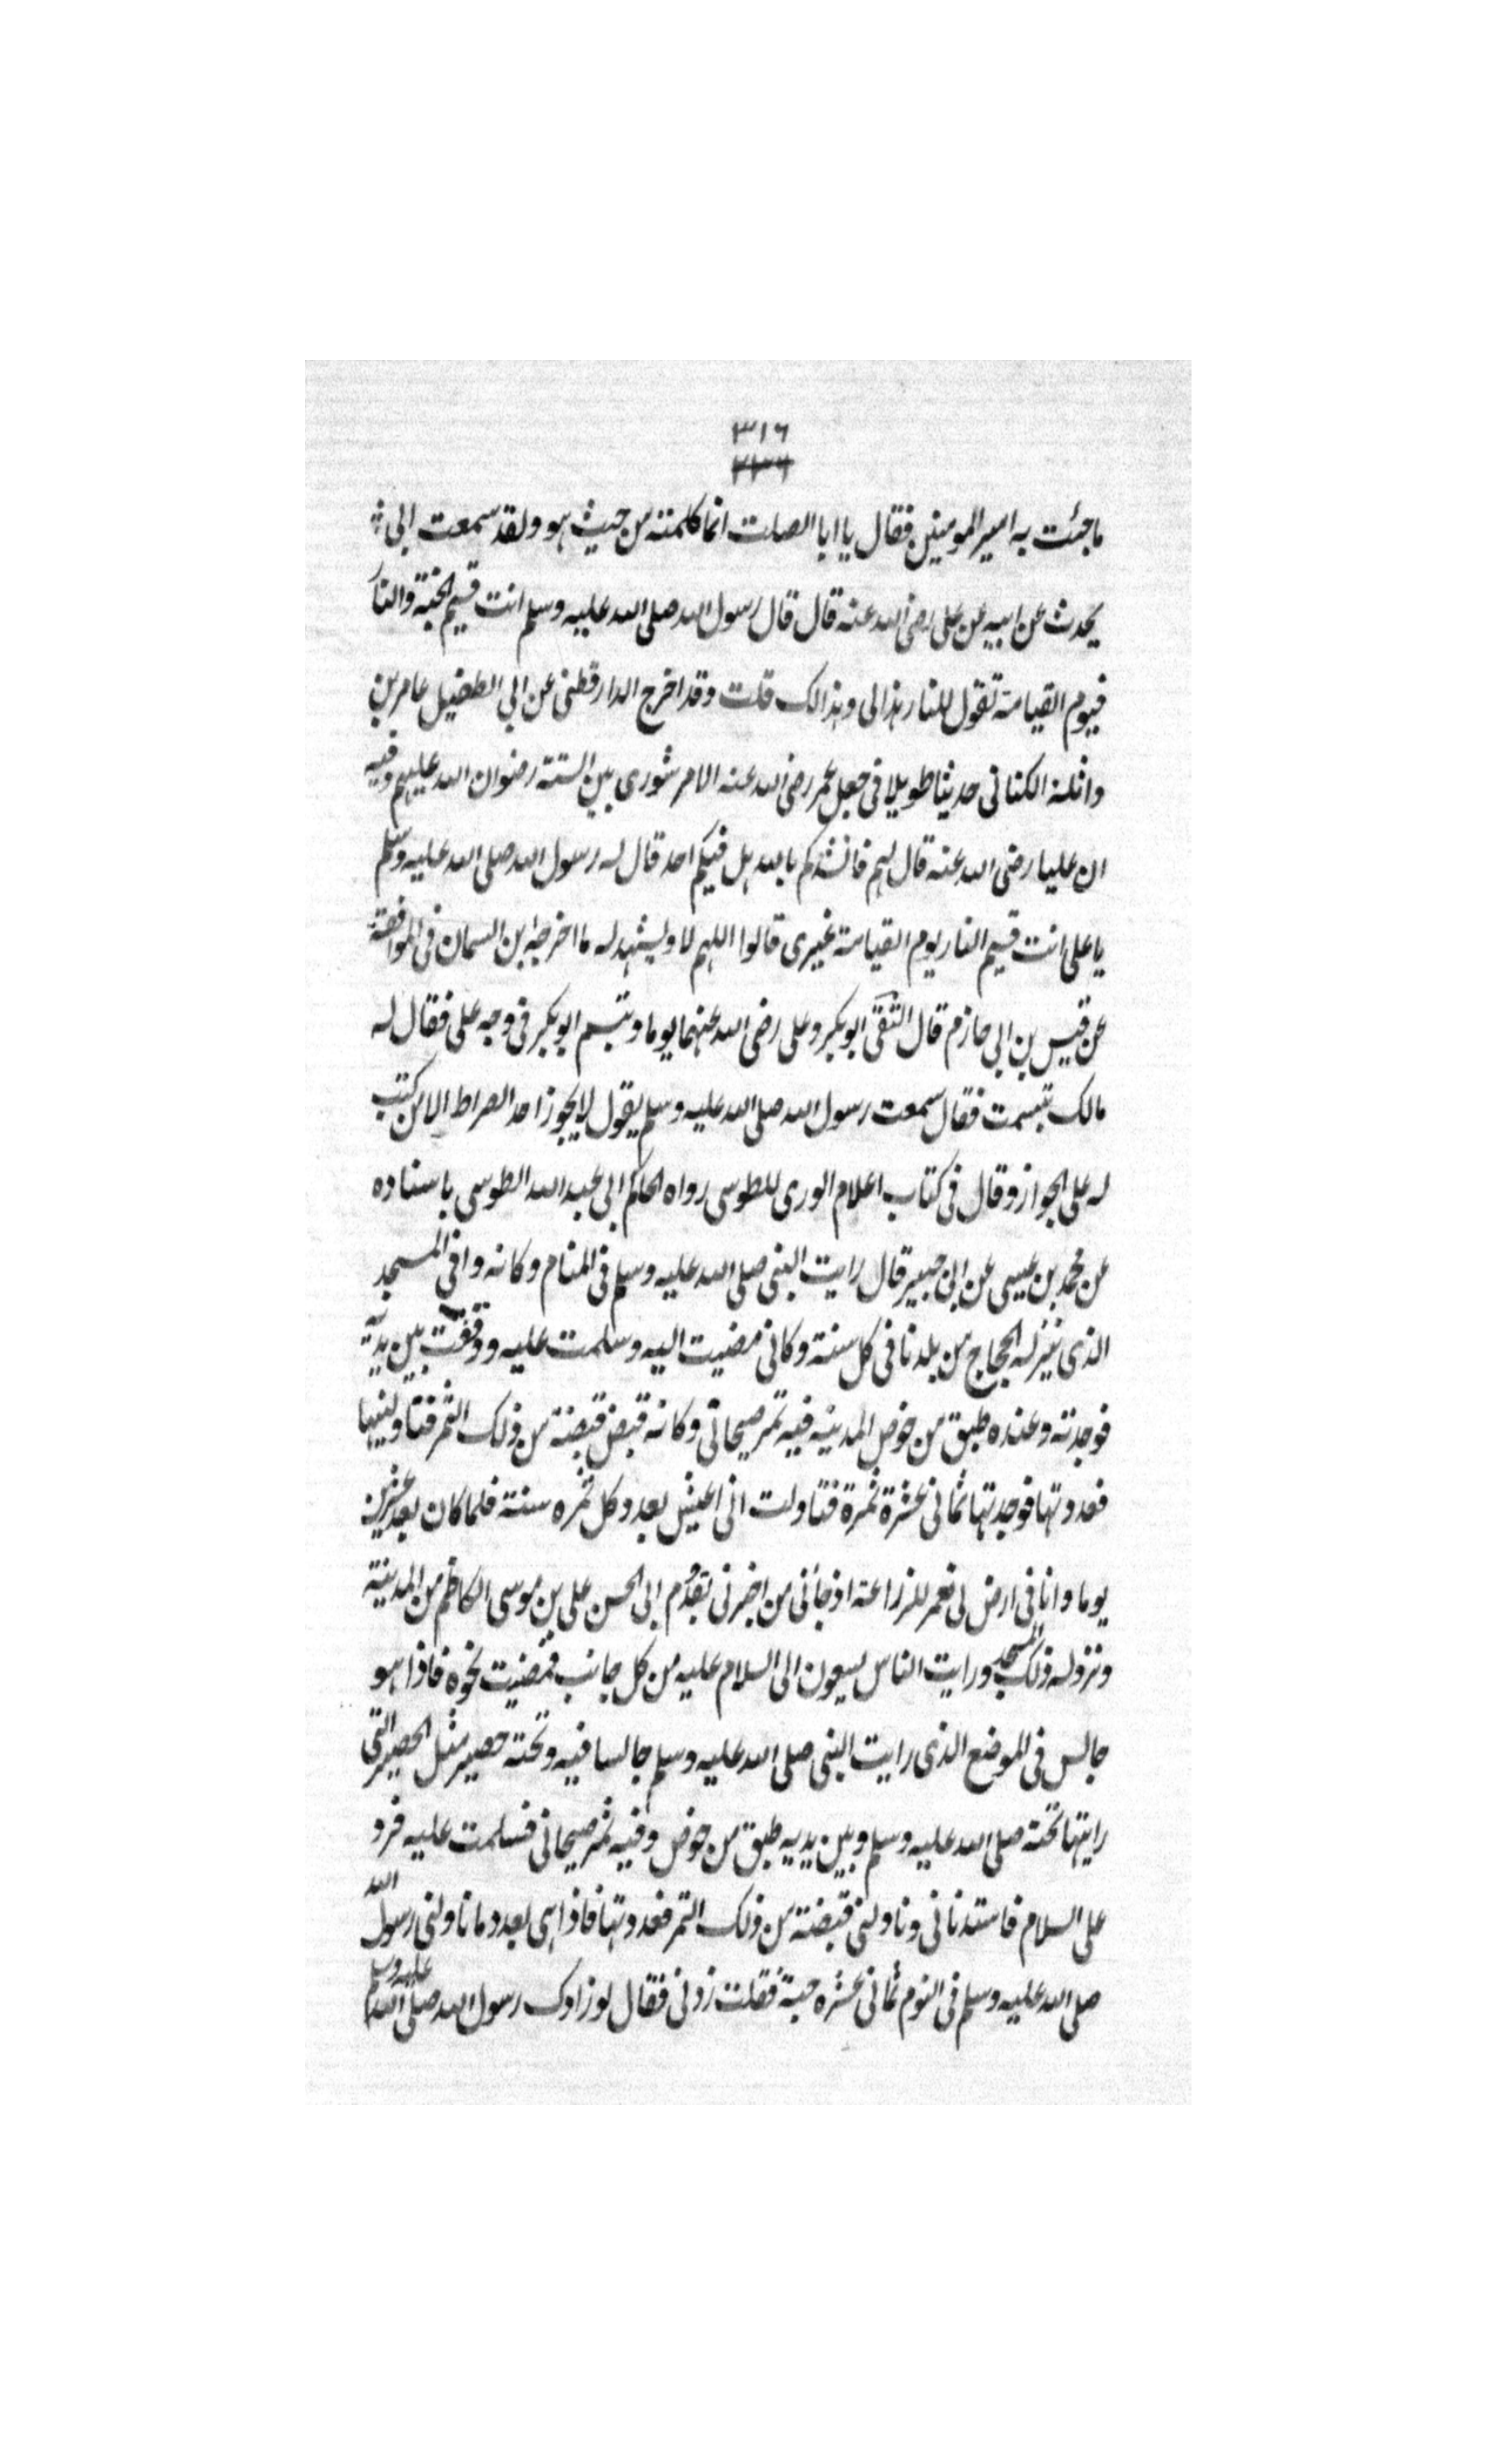 ٣١٦
٣٣٦
ما جئت به امير المومنين فقال يا ابا الصلت انما كلمته من حيث هو ولقد سمعت ابى
يحدث عن ابيه عن على رضى الله عنه قال قال رسول الله صلى الله عليه وسلم انت قسيم الجنة والنار
فيوم القيامة تقول للنار هذا لى وهذا لك قلت وقد اخرج الدارقطنى عن ابي الطفيل عامر بن
واثلة الكنانى حديثا طويلا فى جعل عمر رضى الله عنه الامر شورى بين الستة رضوان الله عليهم وفيه
ان عليا رضى الله عنه قال لهم فانشدكم بالله هل فيكم احد قال له رسول الله صلى الله عليه وسلم
يا على انت قسيم النار يوم القيامة غيرى قالوا اللهم لا ويشهد له ما اخرجه ابن السمان فى الموافقة
عن قيس بن ابي حازم قال التقى ابو بكر وعلى رضى الله عنهما يوما وتبسم ابو بكر فى وجه على فقال له
مالك تبسمت فقال سمعت رسول الله صلى الله عليه وسلم يقول لا يجوز احد الصراط الا من كتب
له على الجواز وقال فى كتاب اعلام الورى للطوسى رواه الحاكم ابى عبد الله الطوسى باسناده
عن محمد بن عيسى عن ابن جبير قال رايت النبى صلى الله عليه وسلم فى المنام وكانه وافى المسجد
الذى ينزله الحجاج من بلدنا فى كل سنة وكانى مضيت اليه وسلمت عليه ووقفت بين يديه
فوجدته وعنده طبق من خوص المدينه فيه تمر صيحانى وكانه قبض قبضة من ذلك التمر فناولنيها
فعدوتها فوجدتها ثمانى عشرة تمرة فتاولت انى اعيش بعدد كل تمره سنة فلما كان بعد عشرين
يوما وانا فى ارض لى تعمر للزراعة اذ جائنى من اخبرنى بقدوم ابى الحسن على بن موسى الكاظم من المدينة
ونزوله ذلك المسجد ورايت الناس يسعون الى السلام عليه من كل جانب فمضيت نحوه فاذا هو
جالس فى الموضع الذى رايت النبى صلى الله عليه وسلم جالسا فيه وتحته حصير مثل الحصير التى
رايتها تحته صلى الله عليه وسلم وبين يديه طبق من خوص وفيه تمر صيحانى فسلمت عليه فرد
على السلام فاستدنانى وناولنى قبضة من ذلك التمر فعدوتها فاذا هى بعدد ما ناولنى رسول الله
صلى الله عليه وسلم فى النوم ثمانى عشره حبة فقلت زدنى فقال لو زادك رسول الله صلى الله عليه وسلم